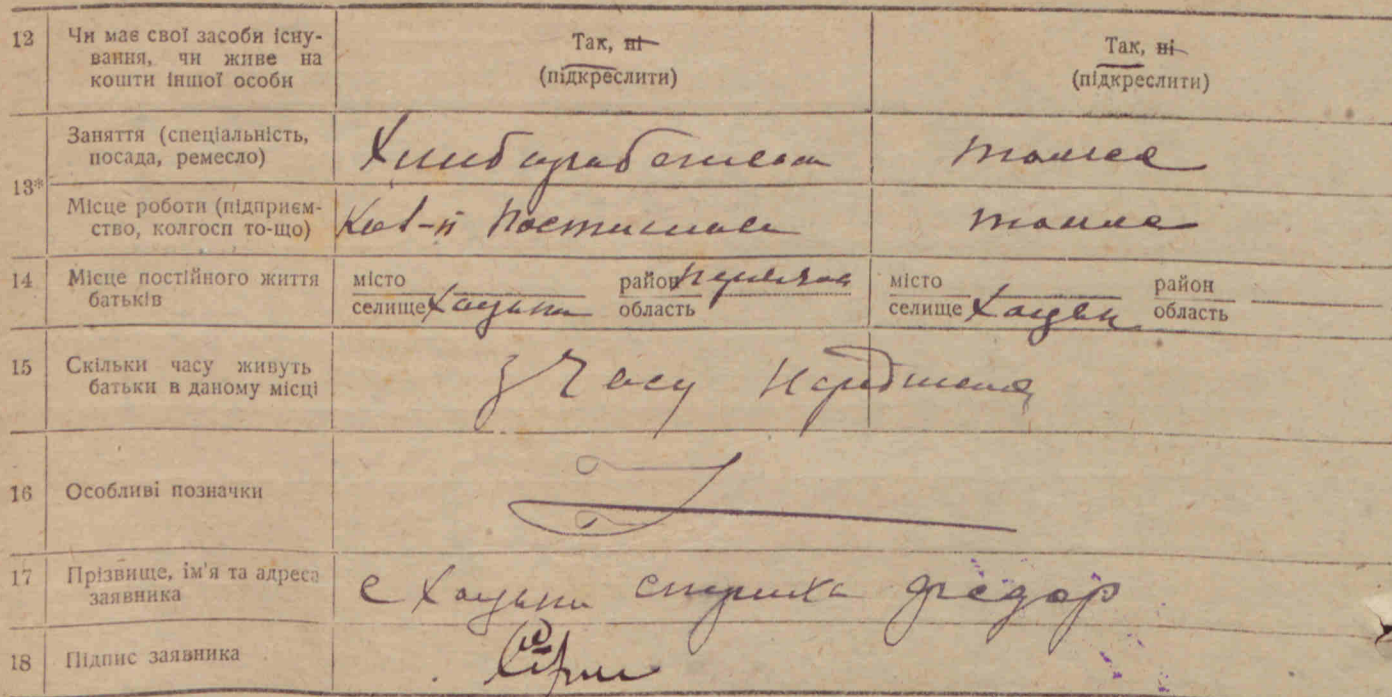 12 Чи має свої засоби існу-
вання, чи живе на
кошти іншої особи
Так, ні
(підкреслити)
Так, ні
(підкреслити)
13*
Заняття (спеціальність,
посада, ремесло)
также
Місце роботи (підприєм-
ство, колгосп то-що)
также
14 Місце постійного життя
батьків
місто
селище Хацьки
район
область
місто
селище Хацьки
район
область
15 Скільки часу живуть
батьки в даному місці
з часу
16 Особливі позначки
17 Прізвище, ім'я та адреса
заявника
с Хацьки
18 Підпис заявника